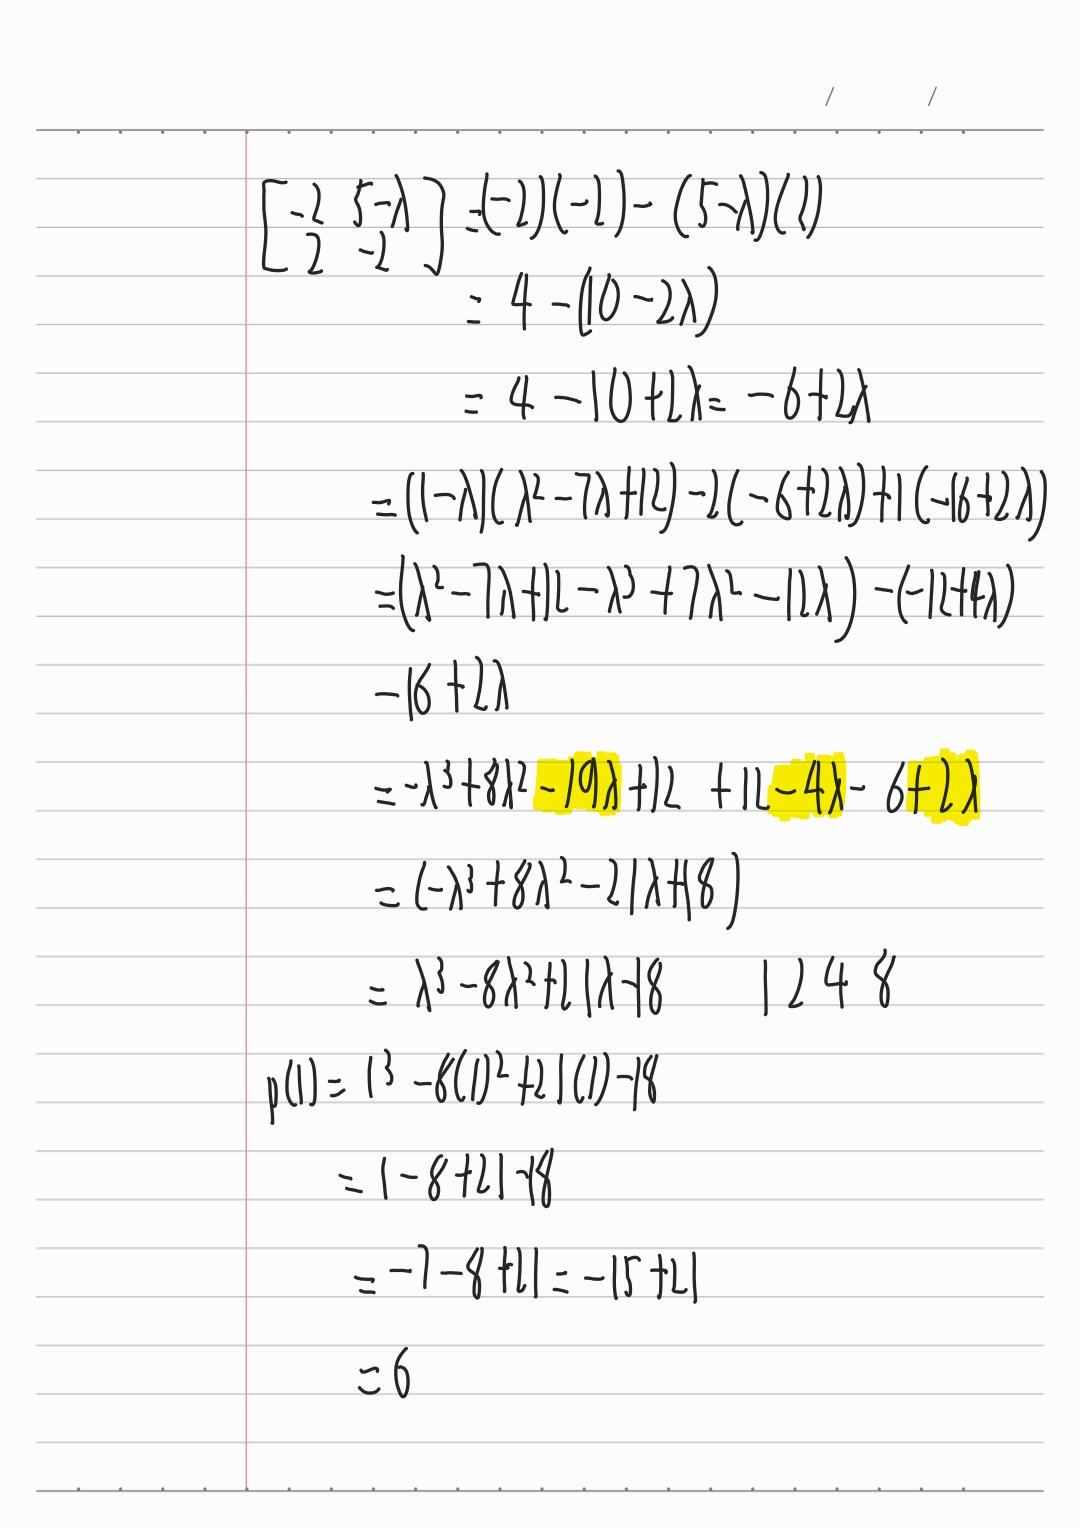 [-2 5-λ] =(-2)(-2) - (5-λ)(2)
[2 -2]
= 4 - (10 - 2λ)
= 4 - 10 + 2λ = -6 + 2λ
= (1-λ)(λ² - 7λ + 12) - 2(-6 + 2λ) + 1(-16 + 2λ)
= (λ² - 7λ + 12 - λ³ + 7λ² - 12λ) - (-12 + 4λ)
-16 + 2λ
= -λ³ + 8λ² - 19λ + 12 + 12 - 4λ - 6 + 2λ
= (-λ³ + 8λ² - 21λ + 18)
= λ³ - 8λ² + 21λ - 18 1 2 4 8
p(1) = 1³ - 8(1)² + 21(1) - 18
= 1 - 8 + 21 - 18
= -7 - 8 + 21 = -15 + 21
= 6